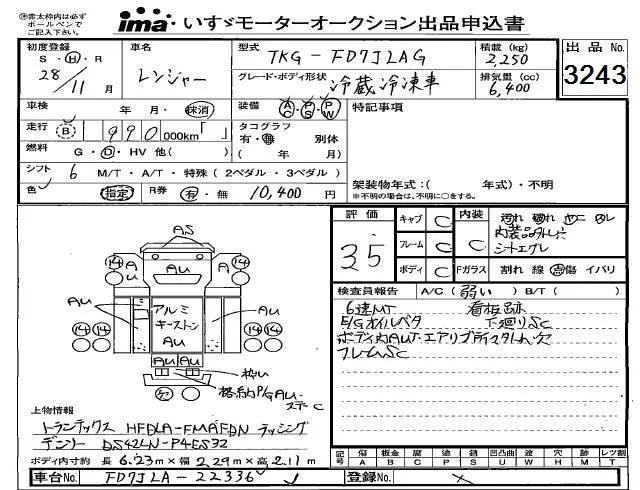 ㊟赤太枠内は必ず
ボールペンで
ご記入下さい。
ima いすゞモーターオークション出品申込書
初度登録
S・Ⓗ・R
28/11 月
車名
レンジャー
型式
TKG-FD7JLAG
グレード・ボディ形状
冷蔵冷凍車
積載 (kg)
2,250
排気量 (cc)
6,400
出品 No.
3243
車検
年 月・抹消
装備 AC・PS・PW
特記事項
走行 B 990000km「 」
タコグラフ
有・無 別体
( 年 月)
燃料 G・D・HV 他( )
シフト 6 M/T・A/T・特殊 (2ペダル・3ペダル)
色 指定 R券 有・無 10,400円
架装物年式:( 年式)・不明
※不明の場合は、不明に○をする。
評価
3.5
キャブ C
フレーム C
ボディ C
内装
C
Fガラス
汚れ 破れ ヤニ ムレ
シートエグレ
割れ 線 点傷 イバリ
検査員報告 A/C (弱い) B/T ( )
6速MT 看板跡
E/Gオイルベタ 下廻りSC
フレームSC
AS
14 A Au A 14
14
Au Au
アルミ
キーストン
Au
14 14 14 14
Au Au
枠い
格納P/G Au
ステーC
上物情報
トランテックス HFDLA-FMAFDN ラッシング
デンソー DS42LN-P4ES32
ボディ内寸約 長 6.23m×幅 2.29m×高 2.11m
記号 傷 A 板金 B 腐 C 塗 P 錆 S 凹凸曲 U 波 W 穴 H 跡 M レツ割 T
車台No. FD7JLA-22336
登録No. ×